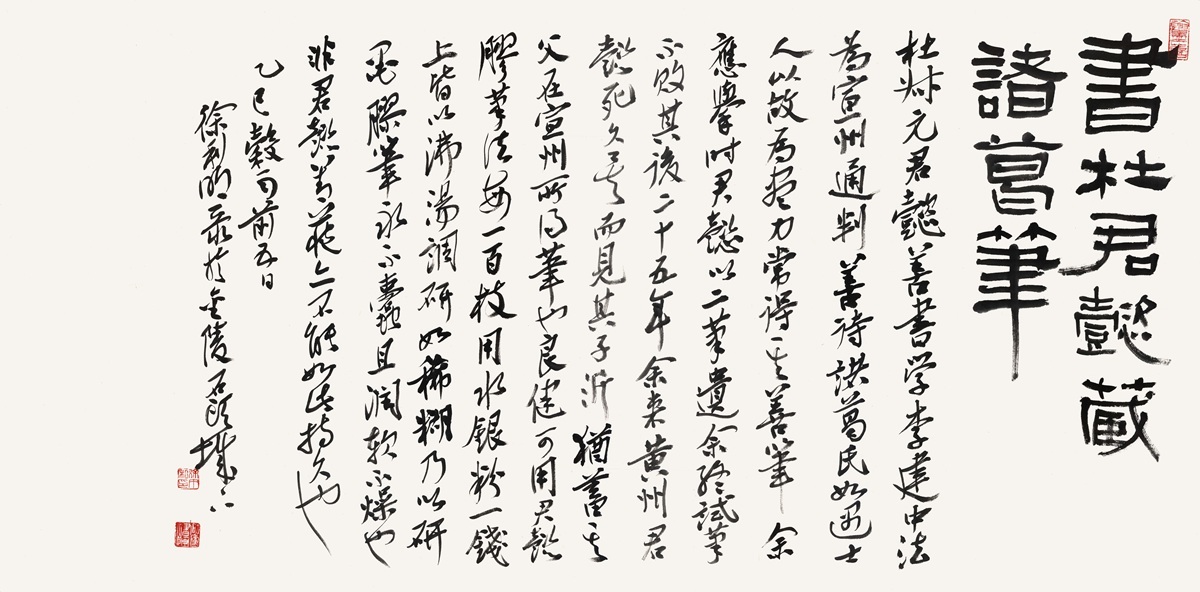 書杜君懿蔵
諸葛筆
杜叔元君懿善書学李建中法
為宣州通判善待諸葛氏如遇士
人以故為盡力常得其善筆余
應舉時君懿以二筆遺余終試筆
不敗其後二十五年余来黄州君
懿死久矣而見其子沂猶蓄其
父在宣州所得筆也良健可用君懿
膠筆法每一百枝用水銀粉一錢
上皆以沸湯調研如稀糊乃以研
墨膠筆永不蠹且潤軟不燥也
非君懿善藏亦不能如此持久也
乙巳穀雨前五日
徐利明录於金陵石頭城下